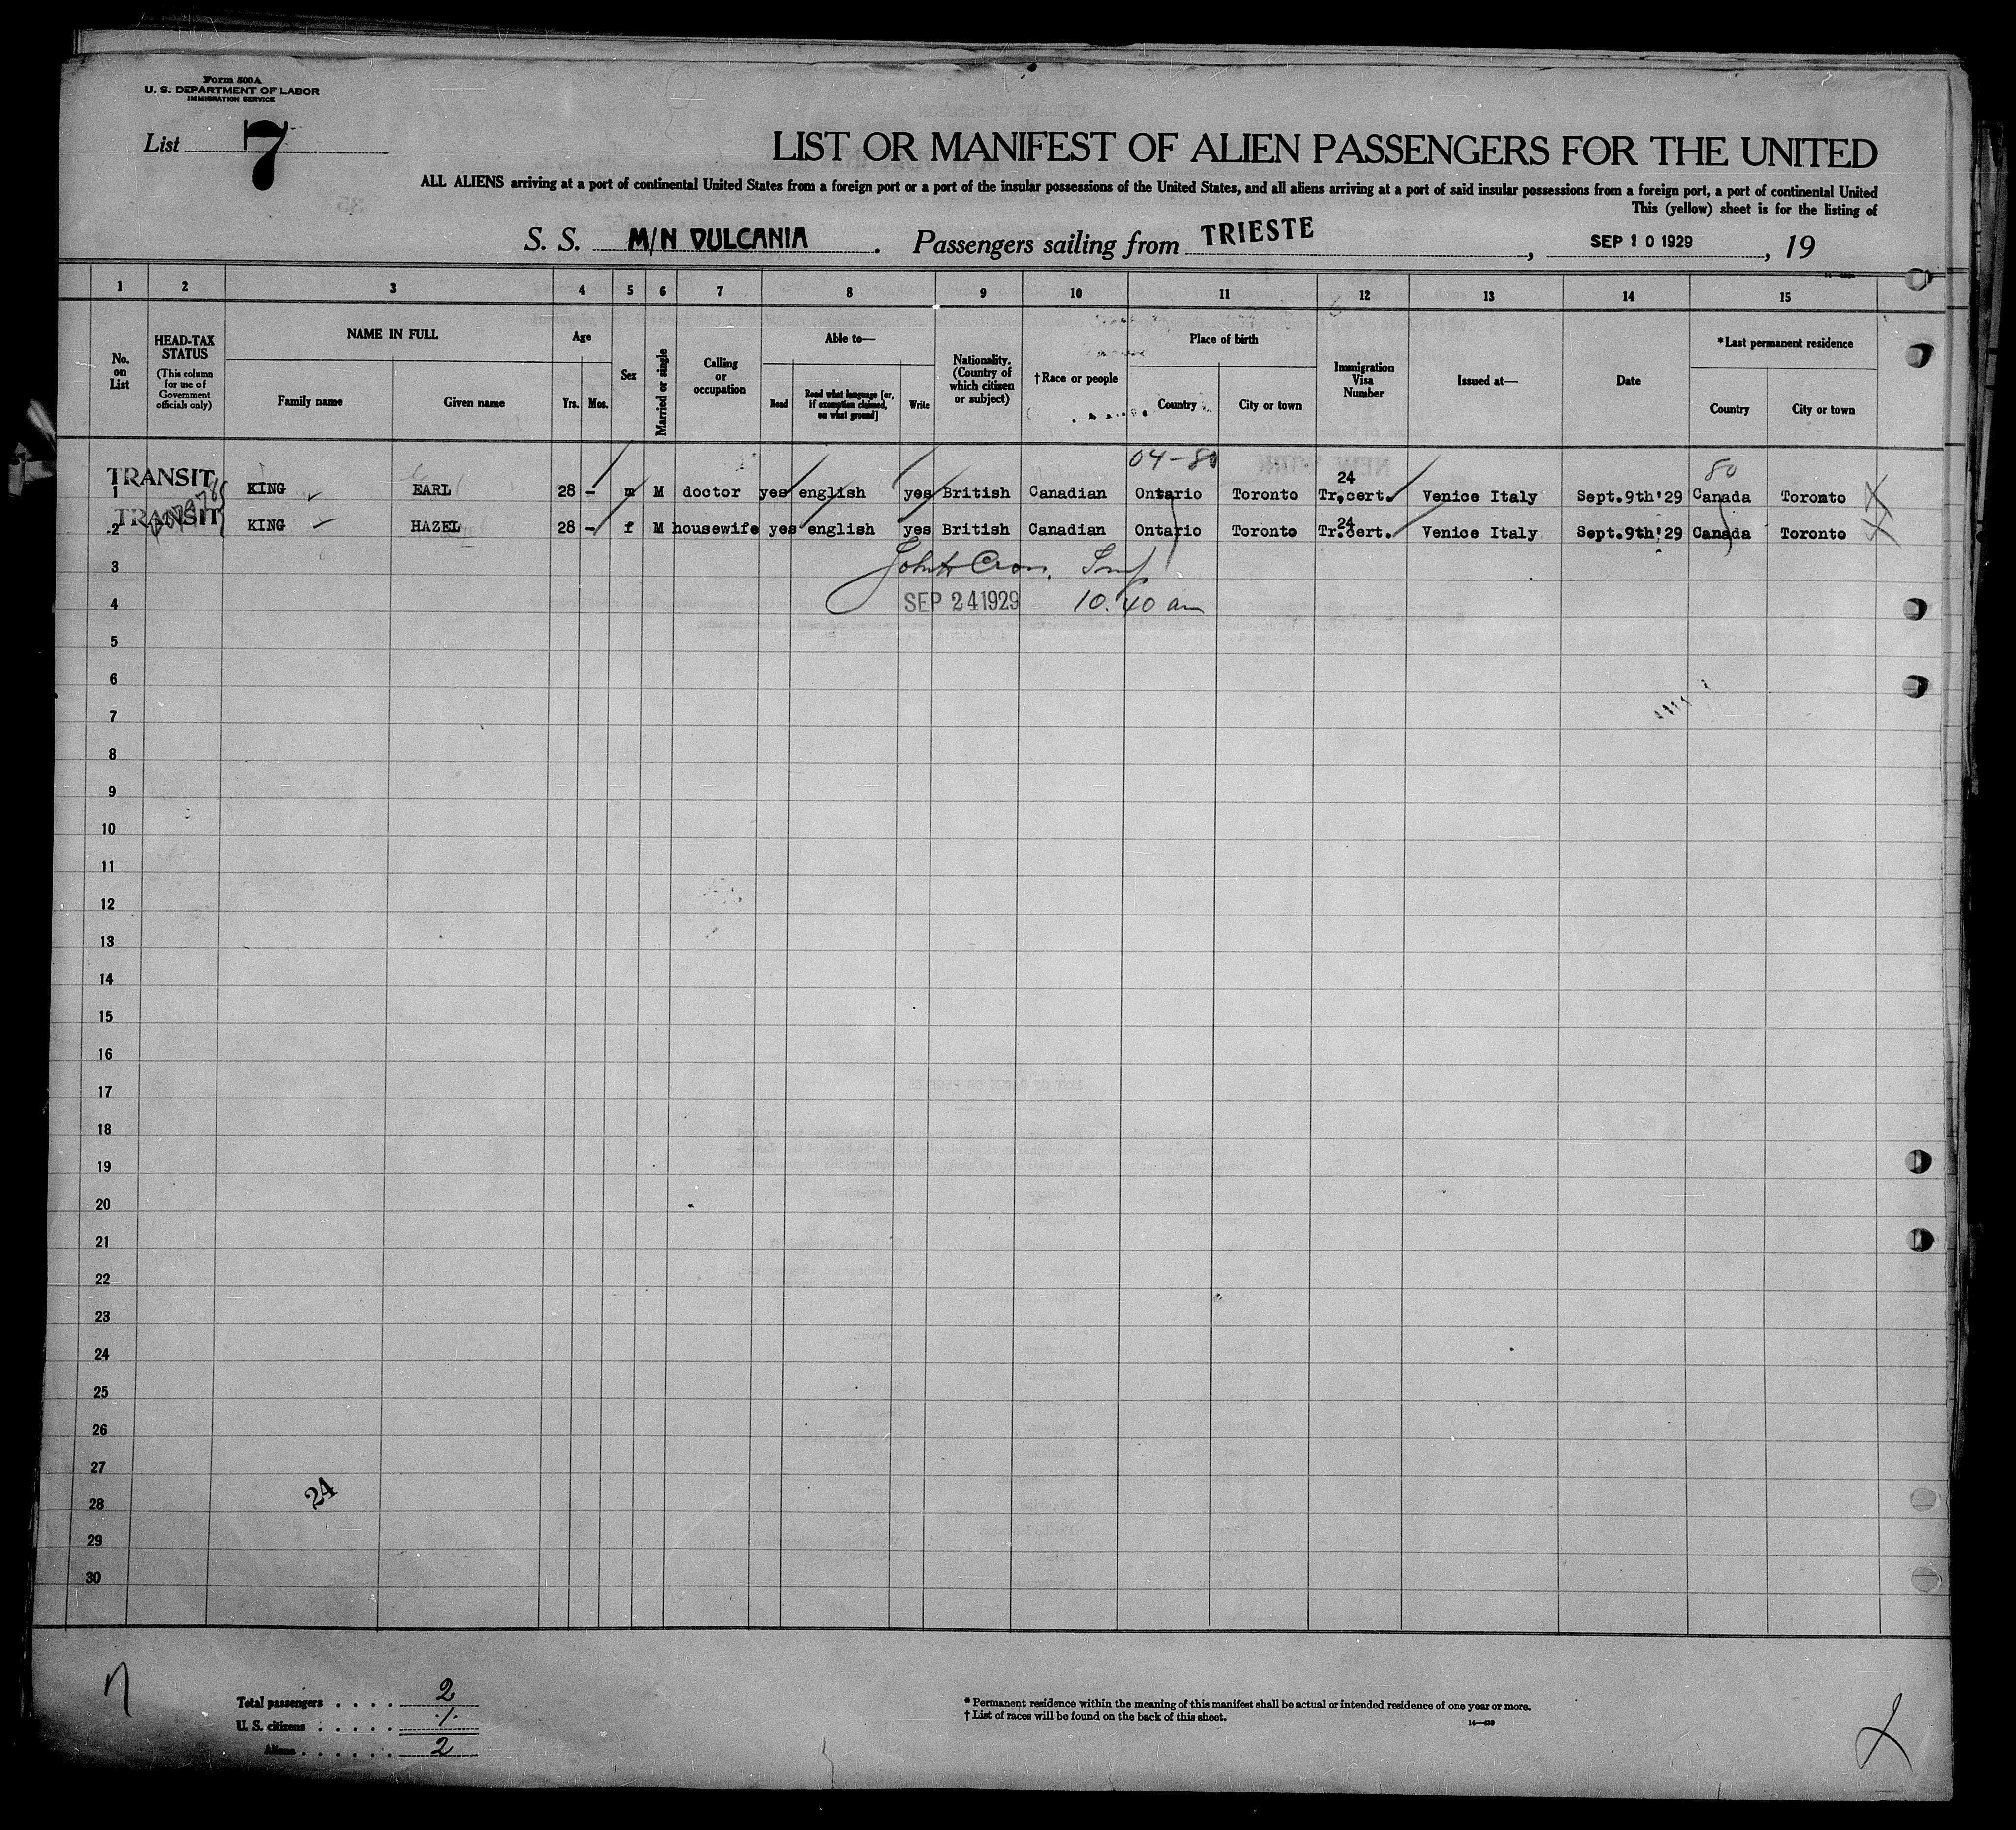 Form 500A
U. S. DEPARTMENT OF LABOR
IMMIGRATION SERVICE
List 7
LIST OR MANIFEST OF ALIEN PASSENGERS FOR THE UNITED
ALL ALIENS arriving at a port of continental United States from a foreign port or a port of the insular possessions of the United States, and all aliens arriving at a port of said insular possessions from a foreign port, a port of continental United
This (yellow) sheet is for the listing of
S. S. M/N VULCANIA. Passengers sailing from TRIESTE, SEP 10 1929, 19
1 2 3 4 5 6 7 8 9 10 11 12 13 14 15
No. on List
HEAD-TAX STATUS
(This column for use of Government officials only)
NAME IN FULL
Family name Given name
Age
Yrs. Mos.
Sex
Married or single
Calling or occupation
Able to—
Read Read what language [or, if exemption claimed, on what ground] Write
Nationality. (Country of which citizen or subject)
†Race or people
Place of birth
Country City or town
Immigration Visa Number
Issued at—
Date
*Last permanent residence
Country City or town
04-80 80
TRANSIT 24
1 KING EARL 28 - m M doctor yes english yes British Canadian Ontario Toronto Tr.cert. Venice Italy Sept.9th'29 Canada Toronto
TRANSIT 24
2 KING HAZEL 28 - f M housewife yes english yes British Canadian Ontario Toronto Tr.cert. Venice Italy Sept.9th'29 Canada Toronto
3
4 SEP 24 1929 10.40 am
5
6
7
8
9
10
11
12
13
14
15
16
17
18
19
20
21
22
23
24
25
26
27
28 24
29
30
Total passengers . . . . 2
U. S. citizens . . . . .
Aliens . . . . . . 2
* Permanent residence within the meaning of this manifest shall be actual or intended residence of one year or more.
† List of races will be found on the back of this sheet.
14—430